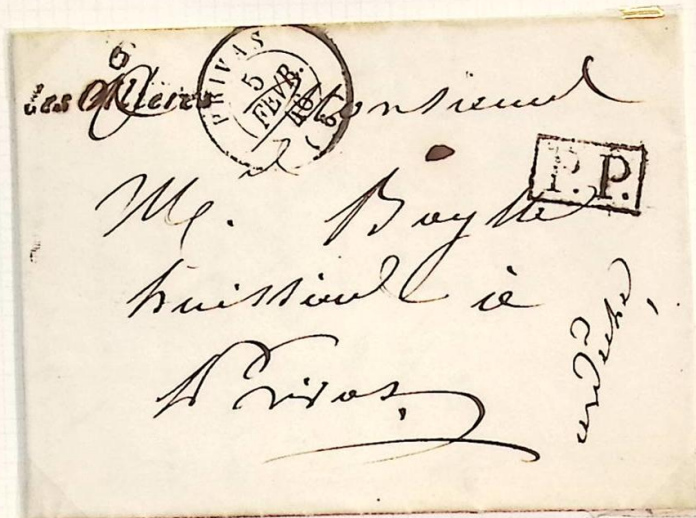 6
Les Ollières
PRIVAS
5
FEVR.
Monsieur
P.P.
M.
huissier à
Privas
ardèche